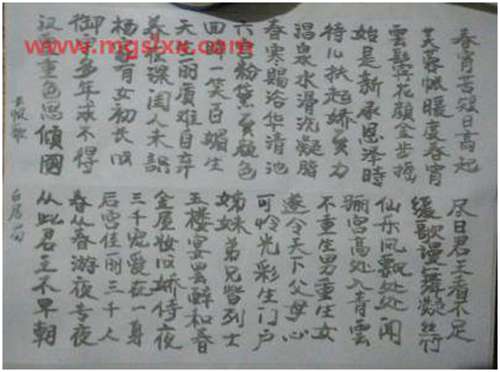 www.mgslxx.com
长恨歌
汉皇重色思倾國
御宇多年求不得
杨家有女初长成
养在深闺人未识
天生丽质难自弃
回眸一笑百媚生
六宫粉黛无颜色
春寒赐浴华清池
温泉水滑洗凝脂
侍儿扶起娇无力
始是新承恩泽时
雲鬓花颜金步摇
芙蓉帐暖度春宵
春宵苦短日高起
白居易
从此君王不早朝
春从春游夜专夜
后宫佳丽三千人
三千宠爱在一身
金屋妆成娇侍夜
玉楼宴罢醉和春
姊妹弟兄皆列士
可怜光彩生门户
遂令天下父母心
不重生男重生女
骊宫高处入青雲
仙乐风飘处处闻
缓歌慢舞凝丝竹
尽日君王看不足